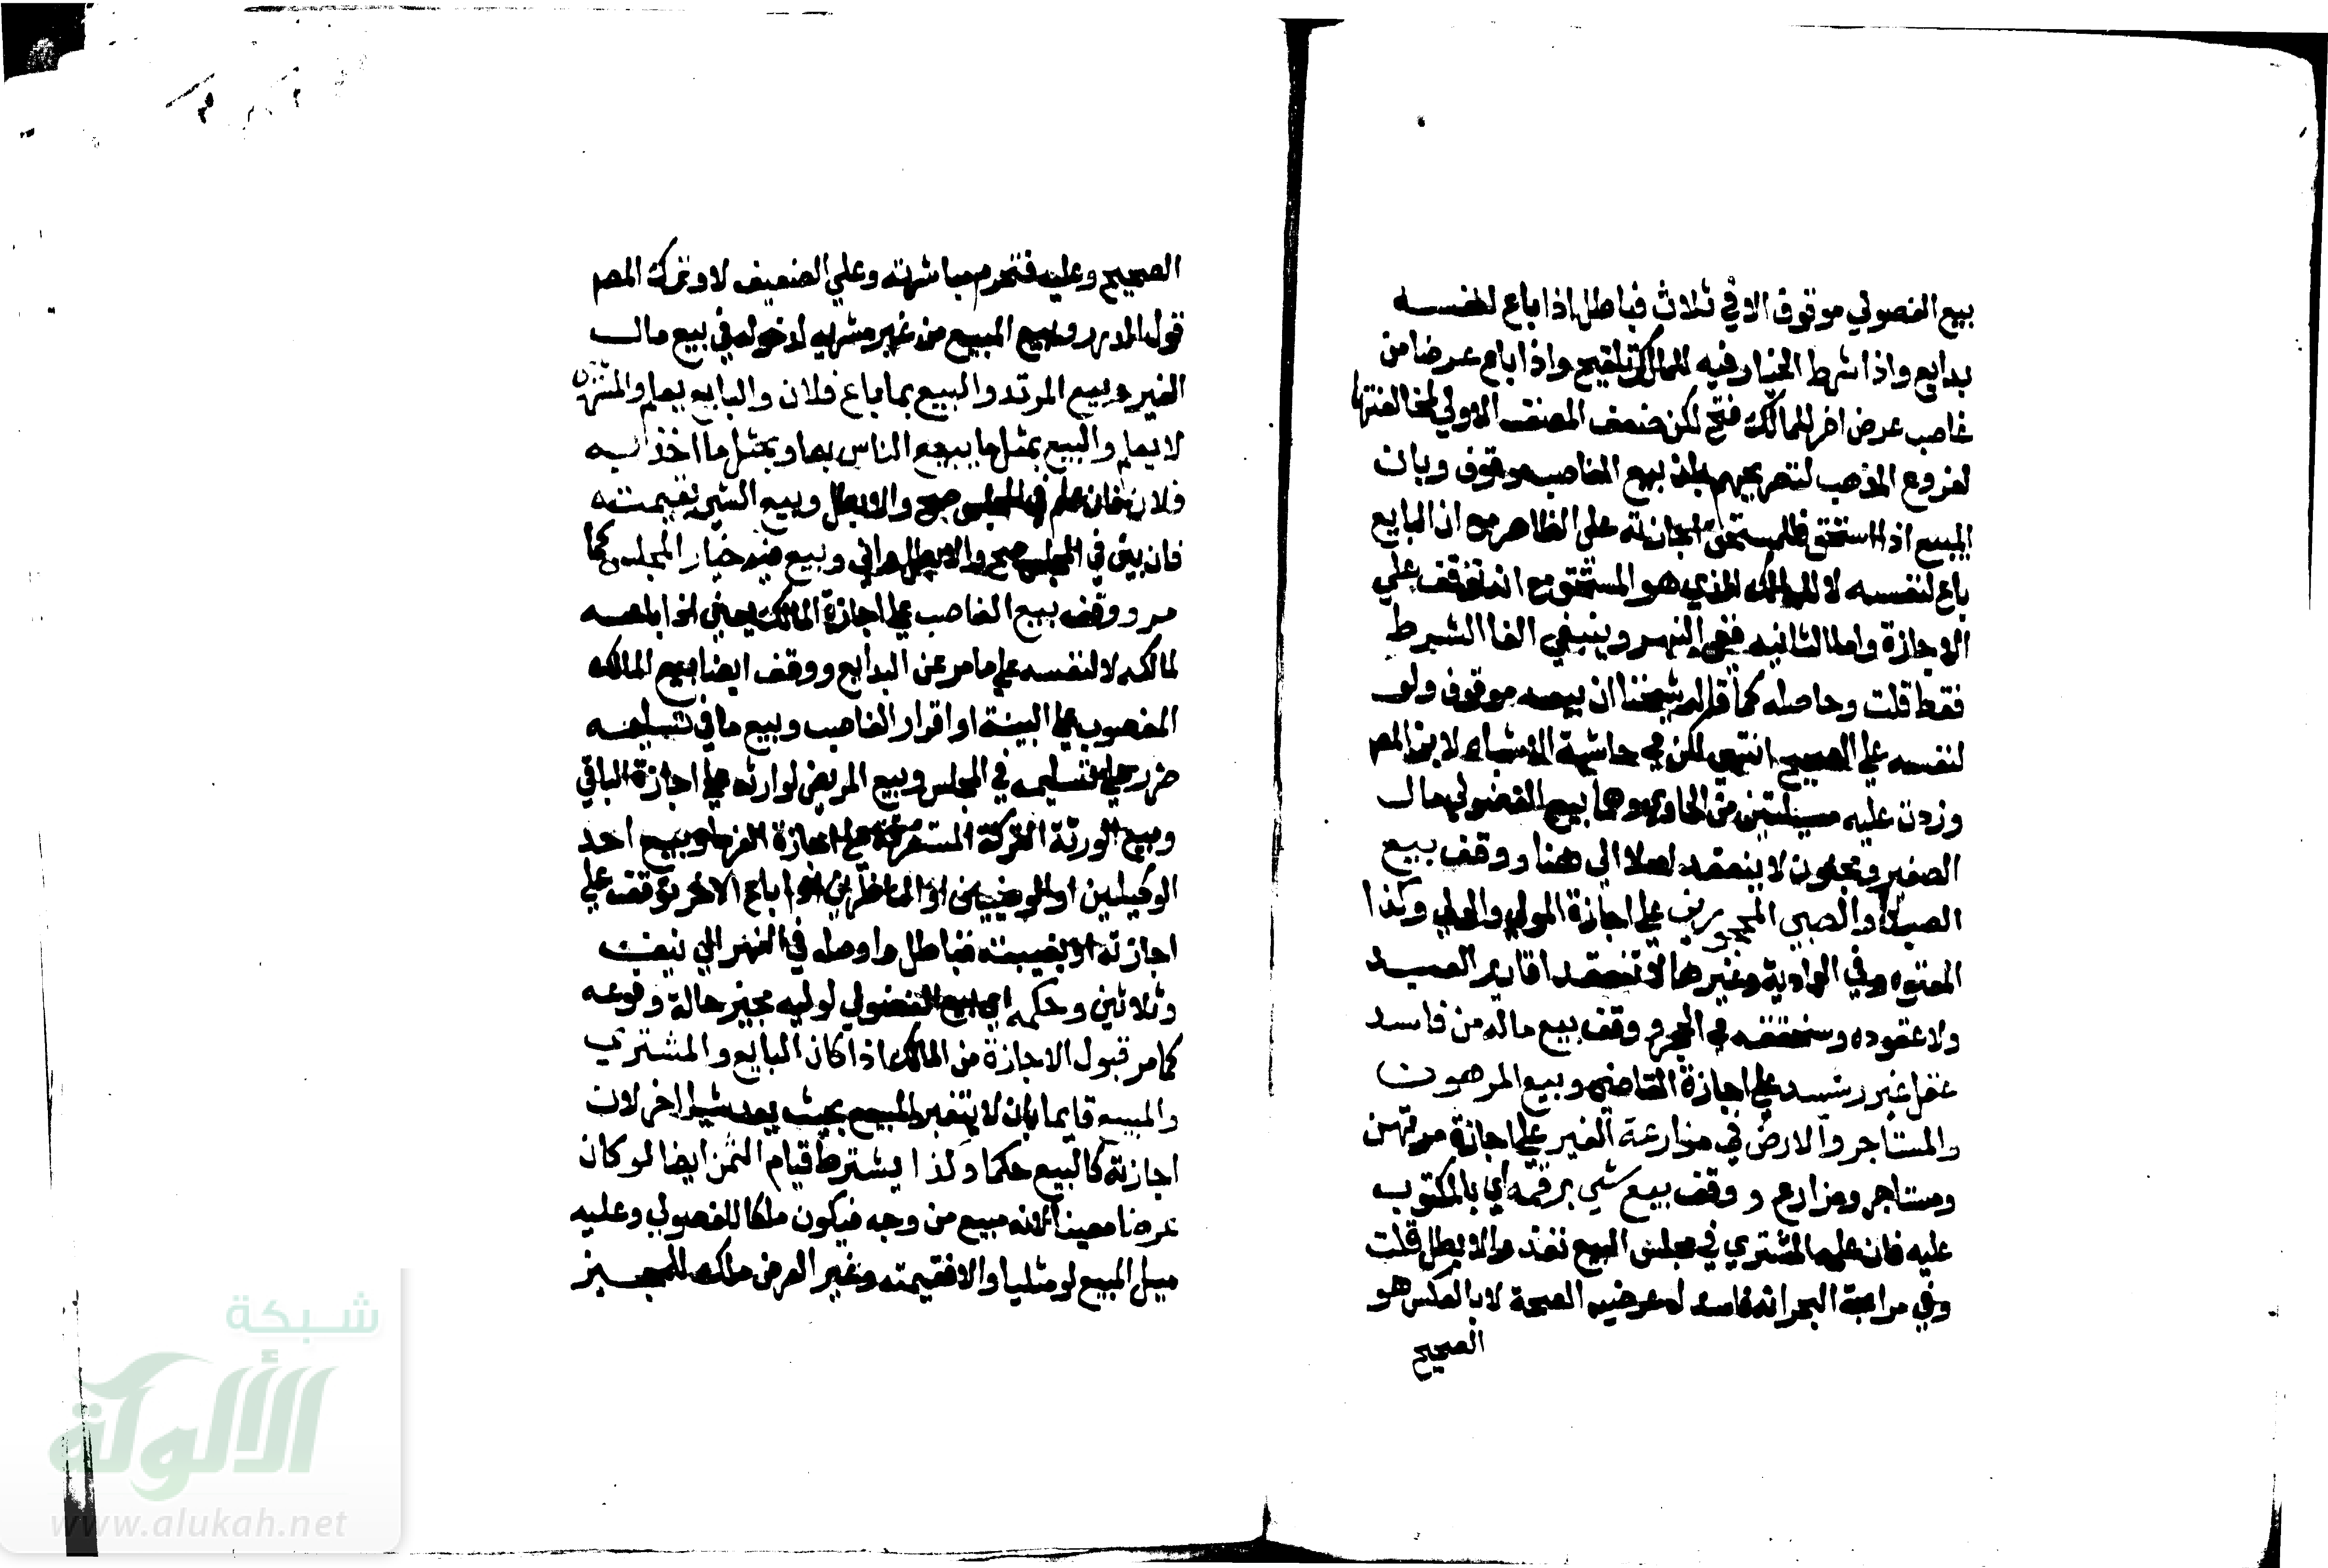 بيع الفضولي موقوف الا في ثلاث فباطل اذا باع لنفسه
بدايع واذا شرط الخيار فيه للمالك تلقيح واذا باع عرضا من
غاصب عرض اخر للمالك فتح لكن ضعف المصنف الاولي لمخالفتها
لفروع المذهب لتصريحهم بان بيع الغاصب موقوف وبان
المبيع اذا استحق فللمستحق اجازته علي الظاهر مع ان البايع
باع لنفسه لا للمالك الذي هو المستحق مع انه توقف علي
الاجازة واما الثانيه ففي النهر وينبغي الغا الشرط
فقط قلت وحاصله كما قاله شيخنا ان بيعه موقوف ولو
لنفسه علي الصحيح انتهي لكن في حاشية الاشباه لابن المص
وزدت عليه مسيلتين من الحاوي وهما بيع الفضولي مال
الصغير ومجنون لا ينعقد اصلا الي هنا ووقف بيع
العبد والصبي المحجورين علي اجازة المولي والولي وكذا
المعتوه وفي العمادية وغيرها لا تنعقد اقارير العبد
ولا عقوده وسنحققه في الحجر ووقف بيع ماله من فاسد
عقل غير رشيد علي اجازة القاضي وبيع المرهون
والمستاجر والارض في مزارعة الغير علي اجازة مرتهن
ومستاجر ومزارع ووقف بيع شي برقمه اي بالمكتوب
عليه فان علمه المشتري في مجلس البيع نفذ والا بطل قلت
وفي مرابحة البحر انه فاسد له عرضيه الصحة لا بالعكس هو
الصحيح
الصحيح وعليه فتحرم مباشرته وعلي الضعيف لا وترك المص
قول الدرر وبيع المبيع من غير مشتريه لدخوله في بيع مال
الغير وبيع المرتد والبيع بما باع فلان والبايع يعلم والمشتري
لا يعلم والبيع بمثل ما يبيع الناس به او بمثل ما اخذ به
فلان فان علم في المجلس صح والا بطل وبيع الشي بقيمته
فان بين في المجلس صح والا بطل وبيع فيه خيار المجلس كما
مر ووقف بيع الغاصب علي اجازة المالك يعني اذا باعه
لمالكه لا لنفسه علي ما مر عن البدايع ووقف ايضا بيع المالك
المغصوب علي البينة او اقرار الغاصب وبيع ما في تسليمه
ضرر علي تسليمه في المجلس وبيع المريض لوارثه علي اجازة الباقي
وبيع الورثة التركة المستغرقة علي اجازة الغرما وبيع احد
الوكيلين او الوصيين او الناظرين اذا باع الاخر توقف علي
اجازته او بغيبته فباطل واوصله في النهر الي نيف
وثلاثين وحكمه اي بيع الفضولي لو له مجيز حالة وقوعه
كما مر قبول الاجازة من المالك اذا كان البايع والمشتري
والمبيع قايما بان لا يتغير المبيع بحيث يعد شيا اخر لان
اجازته كالبيع حكما وكذا يشترط قيام الثمن ايضا لو كان
عرضا معينا لانه مبيع من وجه فيكون ملكا للفضولي وعليه
مثل المبيع لو مثليا والا فقيمته وغير العرض ملك للمجيز
شبكة
الألوكة
www.alukah.net